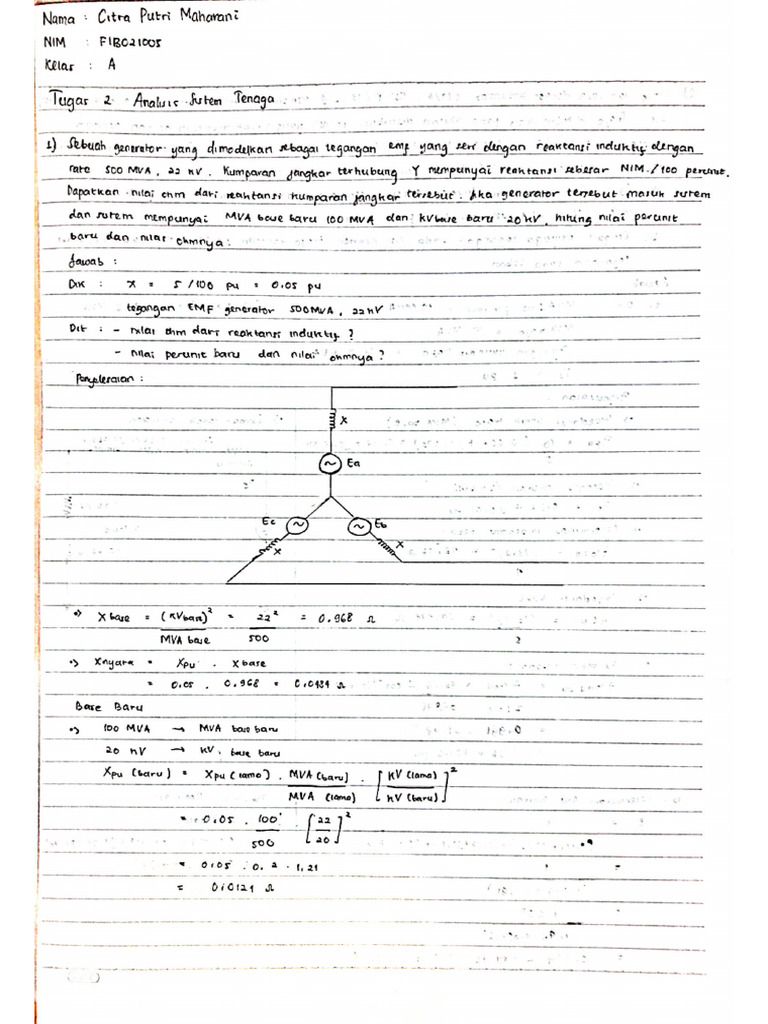 Nama : Citra Putri Maharani
NIM : F1B021005
Kelas : A
Tugas 2 Analisis Sistem Tenaga
1) Sebuah generator yang dimodelkan sebagai tegangan emf yang seri dengan reaktansi induktif dengan
rate 500 MVA, 22 kV. Kumparan jangkar terhubung Y mempunyai reaktansi sebesar NIM/100 perunit.
Dapatkan nilai ohm dari reaktansi kumparan jangkar tersebut. Jika generator tersebut masuk sistem
dan sistem mempunyai MVA base baru 100 MVA dan kV base baru 20 kV, hitung nilai perunit
baru dan nilai ohmnya.
Jawab :
Dik : X = 5/100 pu = 0.05 pu
tegangan EMF generator 500 MVA, 22 kV
Dit : - nilai ohm dari reaktansi induktif ?
- nilai perunit baru dan nilai ohmnya ?
Penyelesaian :
X
Ea
Ec
Eb
X
X
•) X base = (kV base)² = 22² = 0.968 Ω
MVA base 500
•) Xnyata = Xpu . X base
= 0.05 . 0.968 = 0.0484 Ω
Base Baru
•) 100 MVA → MVA base baru
20 kV → kV, base baru
Xpu (baru) = Xpu (lama) . MVA (baru) . [ kV (lama) ]²
MVA (lama) [ kV (baru) ]
= 0.05 . 100 . [ 22 ]²
500 [ 20 ]
= 0.05 . 0.2 . 1,21
= 0.0121 Ω